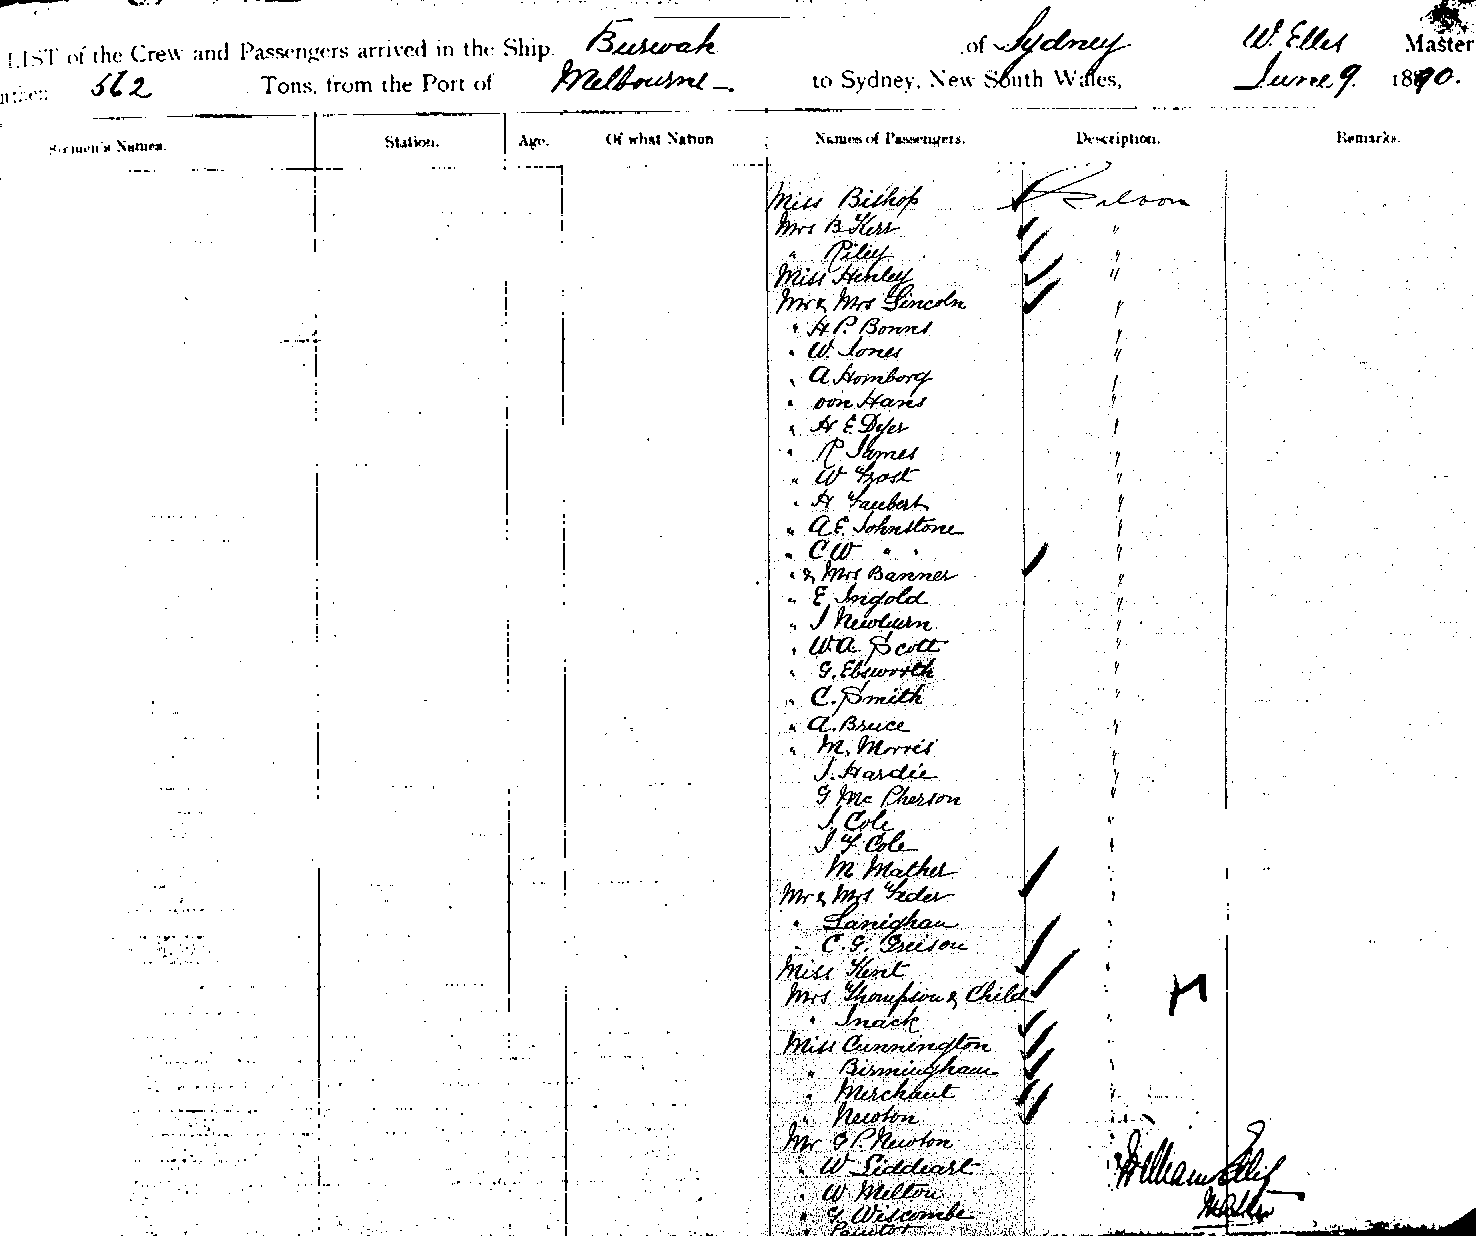 LIST of the Crew and Passengers arrived in the Ship. Burwah of Sydney W. Ellis Master
562 Tons, from the Port of Melbourne — to Sydney, New South Wales, June 9. 1890.
Seamen's Names. Station. Age. Of what Nation Names of Passengers. Description. Remarks.
Miss Bishop Saloon
Mrs B Kerr "
" Riley "
Miss Henley "
Mr & Mrs Lincoln "
" H P. Bonns "
" W. Jones "
" A Homborg "
" von Hans "
" H E Dyer "
" R James "
" W Frost "
" H Faubert "
" A E Johnstone "
" C W " " "
" & Mrs Banner "
" E Ingold "
" J Newburn "
" W A Scott "
" G. Ebsworth "
" C. Smith "
" A. Bruce "
" M. Morris "
J. Hardie "
G Mc Pherson "
J. Cole "
J F Cole "
M Mather "
Mr & Mrs Feder "
" Lanighan "
" C. G. Greeson "
Miss Kent "
Mrs Thompson & Child "
" Snack "
Miss Cunnington "
" Birmingham "
" Merchant "
" Newton "
Mr G P. Newton
" W Siddeart William Ellis
" W Melton Master
" G Wiscombe